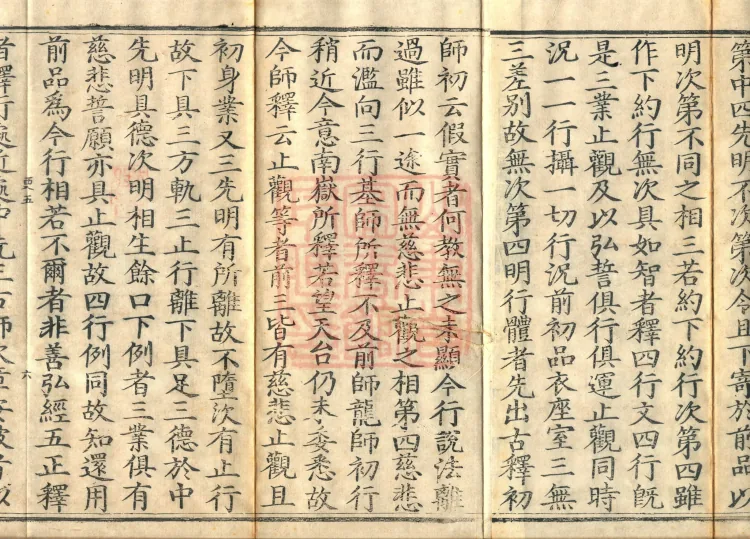 第中四先明不次第次舍且下寄於前品以
明次第不同之相三若約下約行次第四雖
作下約行無次具如智者釋四行文四行旣
是三業止觀及以弘誓俱行俱運止觀同時
況一一行攝一切行況前初品衣座室三無
三差別故無次第四明行體者先出古釋初
師初云假實者何教無之未顯今行說法離
過雖似一途而無慈悲止觀之相第四慈悲
而濫向三行基師所釋不及前師龍師初行
稍近今意南嶽所釋若望天台仍未委悉故
今師釋云止觀等者前三皆有慈悲止觀且
初身業又三先明有所離故不墮次有止行
故下具三方軌三止行離下具足三德於中
先明具德次明相生餘口下例者三業俱有
慈悲誓願亦具止觀故四行例同故知還用
前品為今行相若不爾者非善弘經五正釋
更五 六